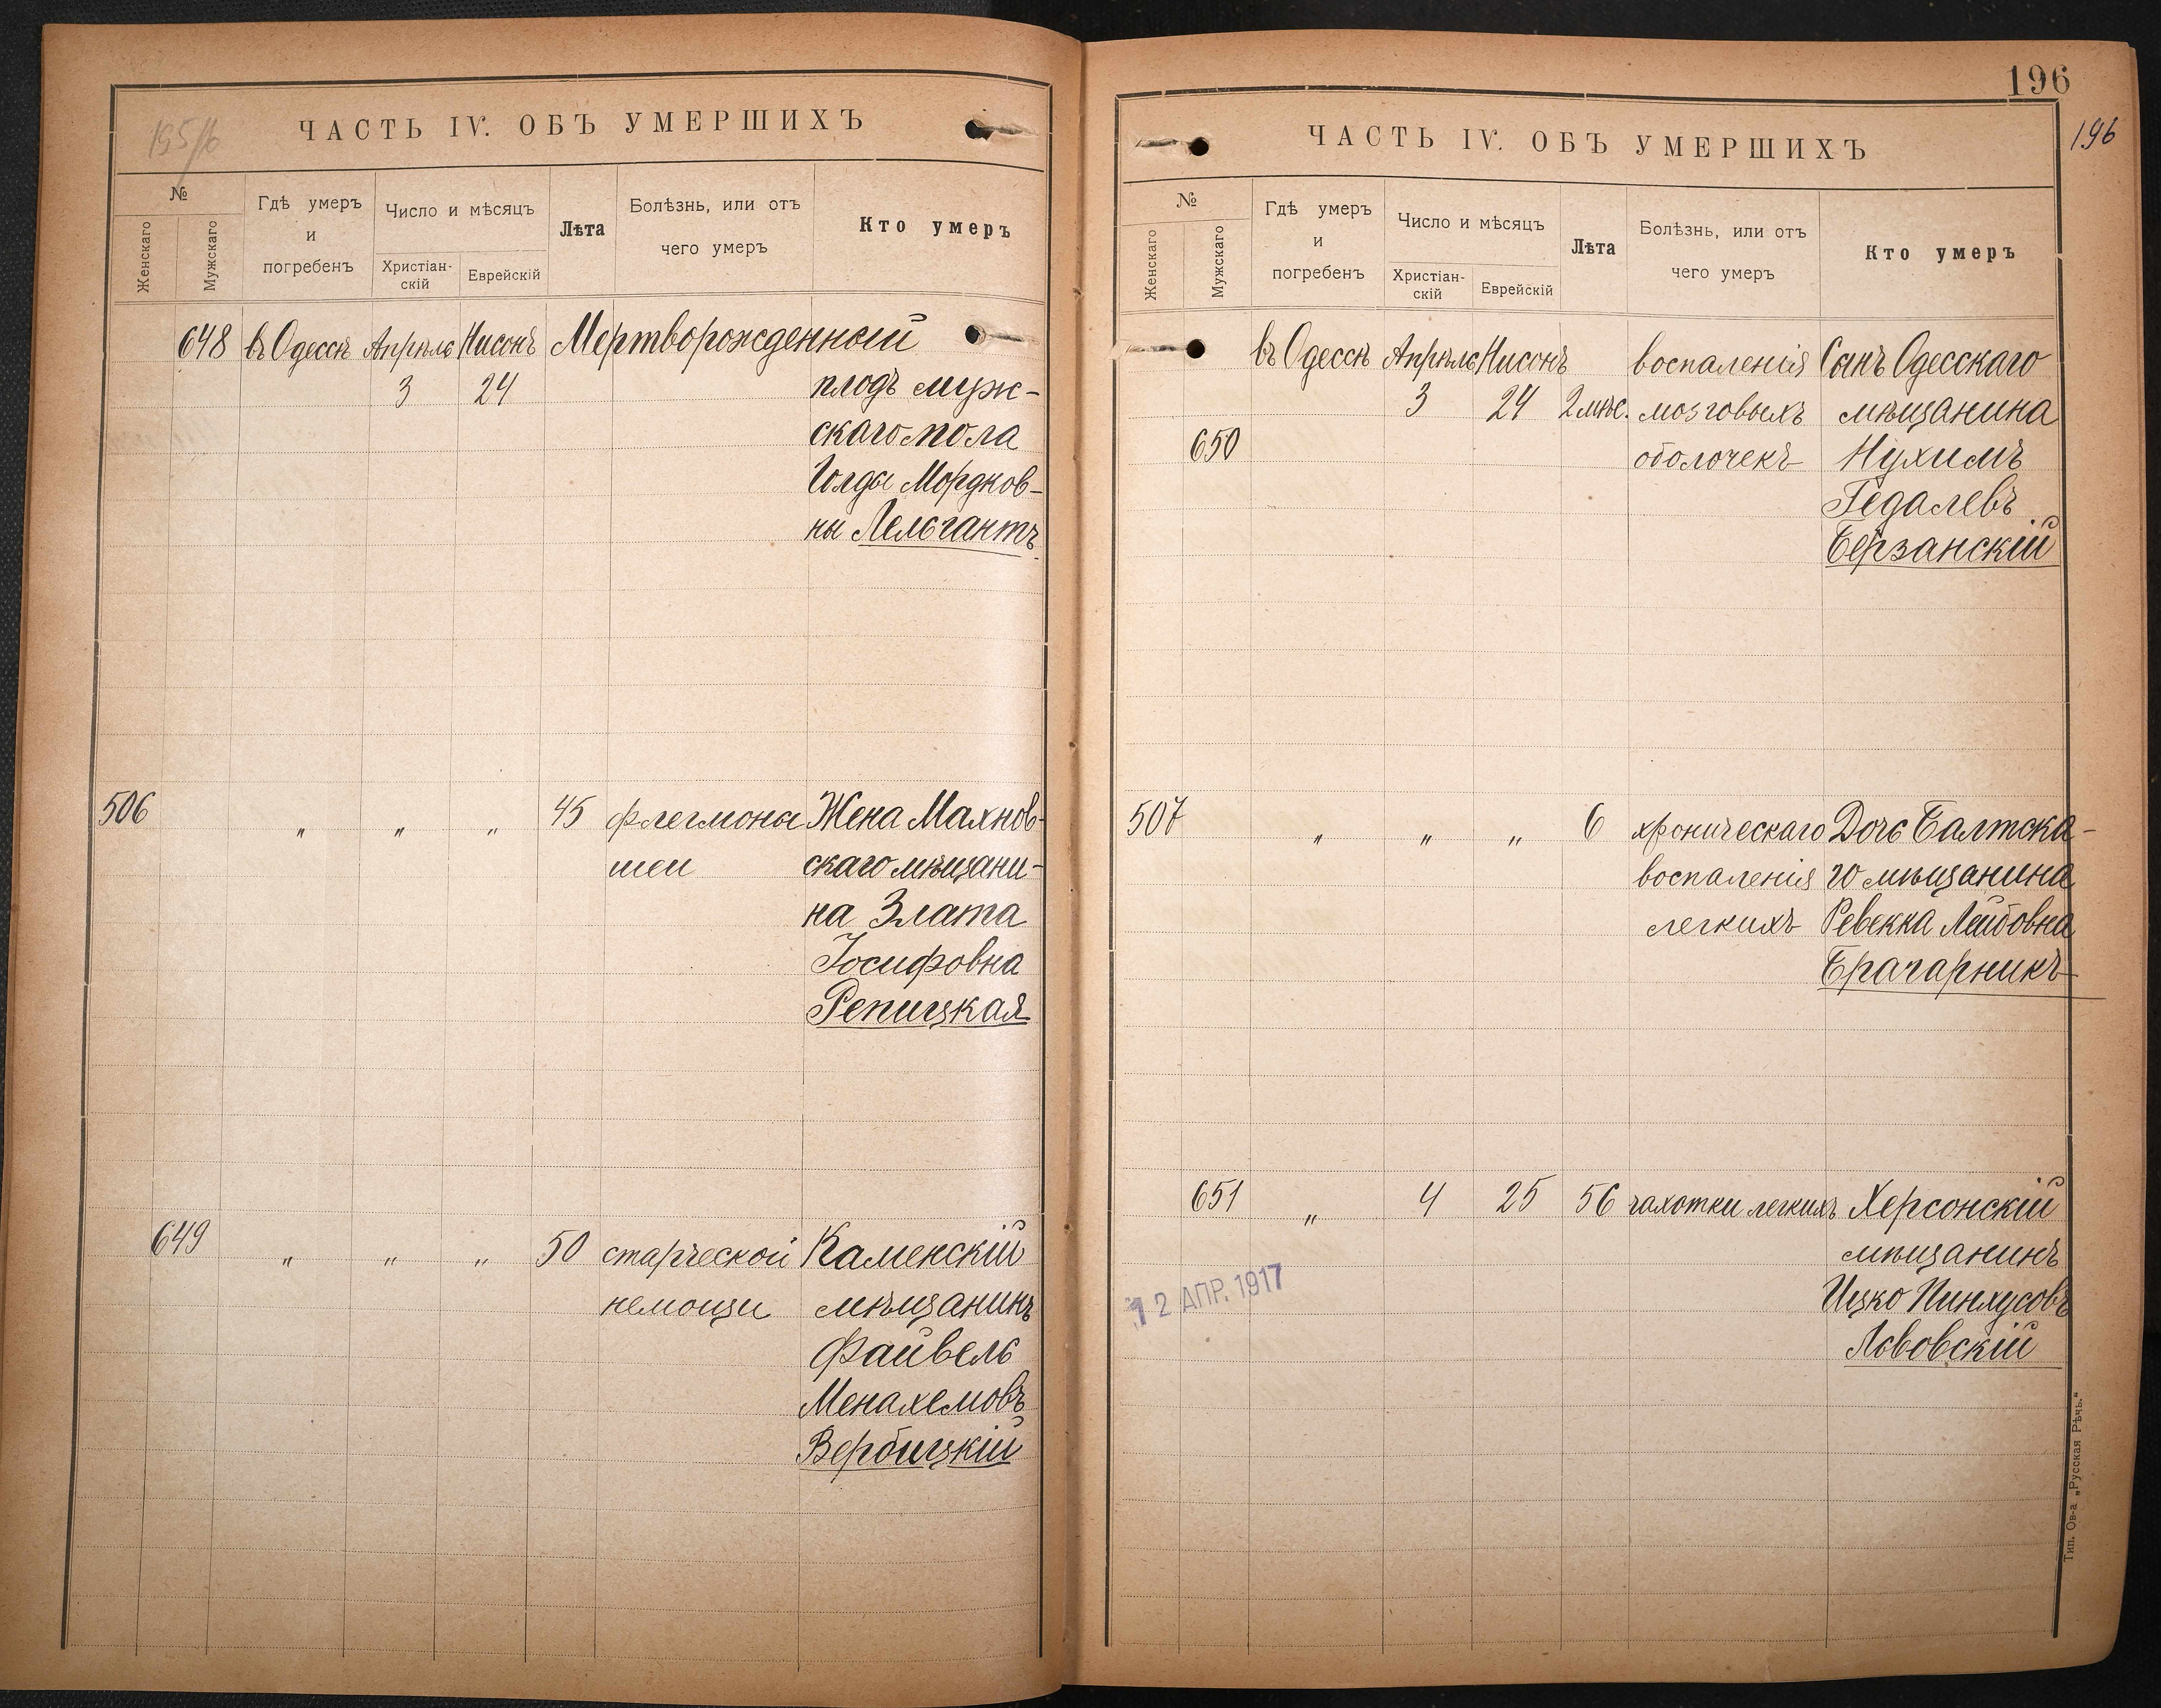 195/6
ЧАСТЬ IV. ОБЪ УМЕРШИХЪ
№
Женскаго
Мужскаго
Гдѣ умеръ
и
погребенъ
Число и мѣсяцъ
Христіан-
скій
Еврейскій
Лѣта
Болѣзнь, или отъ
чего умеръ
Кто умеръ
648 въ Одессѣ Апрѣль Нисонъ Мертворожденный
3 24 плодъ муж-
скаго пола
Голды Мордков-
ны Лельгантъ
506 " " " 45 флегмоны Жена Махнов-
шеи скаго мѣщани-
на Злата
Іосифовна
Репицкая
649 " " " 50 старческой Каменскій
немощи мѣщанинъ
Файвель
Менахемовъ
Вербицкій
196
196
ЧАСТЬ IV. ОБЪ УМЕРШИХЪ
№
Женскаго
Мужскаго
Гдѣ умеръ
и
погребенъ
Число и мѣсяцъ
Христіан-
скій
Еврейскій
Лѣта
Болѣзнь, или отъ
чего умеръ
Кто умеръ
въ Одессѣ Апрѣль Нисонъ воспаленія Сынъ Одесскаго
3 24 2 мѣс. мозговыхъ мѣщанина
650 оболочекъ Нухимъ
Гедалевъ
Берзанскій
507 " " " 6 хроническаго Дочь Балтска-
воспаленія го мѣщанина
легкихъ Ревекка Лейбовна
Брагарникъ
651 " 4 25 56 чахотки легкихъ Херсонскій
мѣщанинъ
Ицко Пинхусовъ
Львовскій
12 АПР. 1917
Тип. Ов-а „Русская Рѣчь."